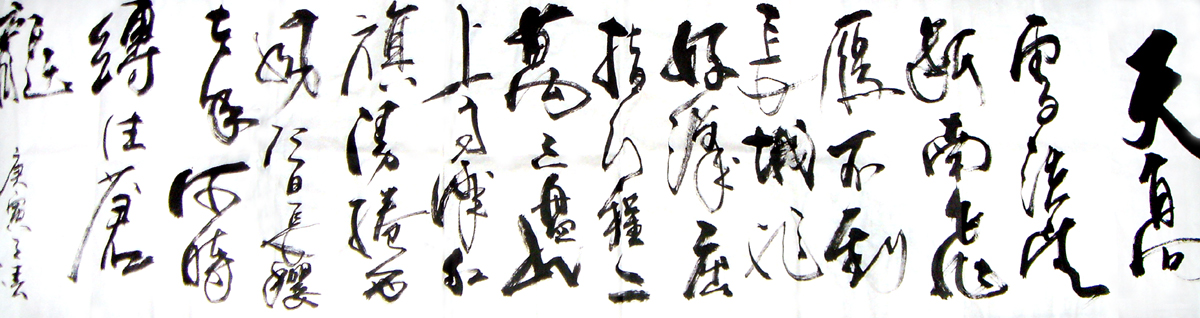 天高
雲淡望
斷南飛
雁不到
長城非
好漢屈
指行程二
萬六盤山
上高峰紅
旗漫捲西
風今日長纓
在手何時
縛住蒼
龍
庚寅之春